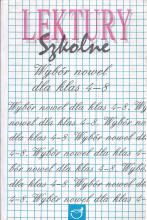 LEKTURY
Szkolne
Wybór nowel
dla klas 4–8
Wybór nowel dla klas 4–8. Wy-
bór nowel dla klas 4–8. Wybór
nowel dla klas 4–8. Wybór no-
wel dla klas 4–8. Wybór nowel
dla klas 4–8. Wybór nowel dla
klas 4–8. Wybór nowel dla klas
4–8. Wybór nowel dla klas 4–